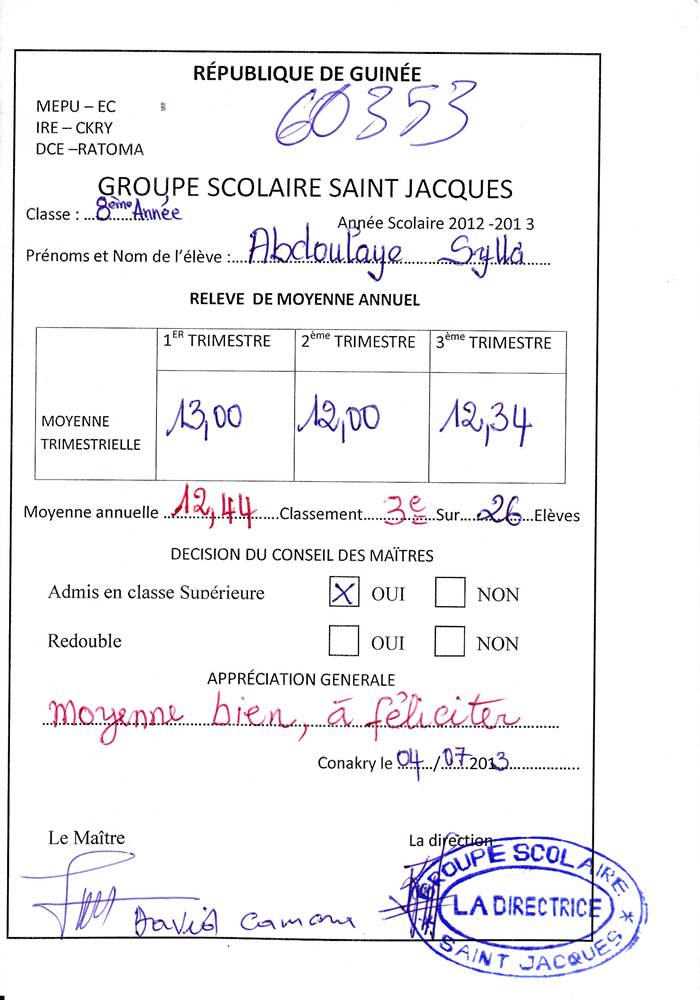 RÉPUBLIQUE DE GUINÉE
60353
MEPU – EC
IRE – CKRY
DCE –RATOMA
GROUPE SCOLAIRE SAINT JACQUES
Classe : ...8ème Année
Année Scolaire 2012 -201 3
Prénoms et Nom de l'élève : Abdoulaye Sylla
RELEVE DE MOYENNE ANNUEL
1ER TRIMESTRE 2ème TRIMESTRE 3ème TRIMESTRE
MOYENNE TRIMESTRIELLE 13,00 12,00 12,34
Moyenne annuelle 12,44 Classement 3e Sur 26 Elèves
DECISION DU CONSEIL DES MAÏTRES
Admis en classe Supérieure X OUI NON
Redouble OUI NON
APPRÉCIATION GENERALE
moyenne bien, à féliciter
Conakry le 04/07 2013
Le Maître La direction
David Camara
GROUPE SCOLAIRE
LA DIRECTRICE
SAINT JACQUES